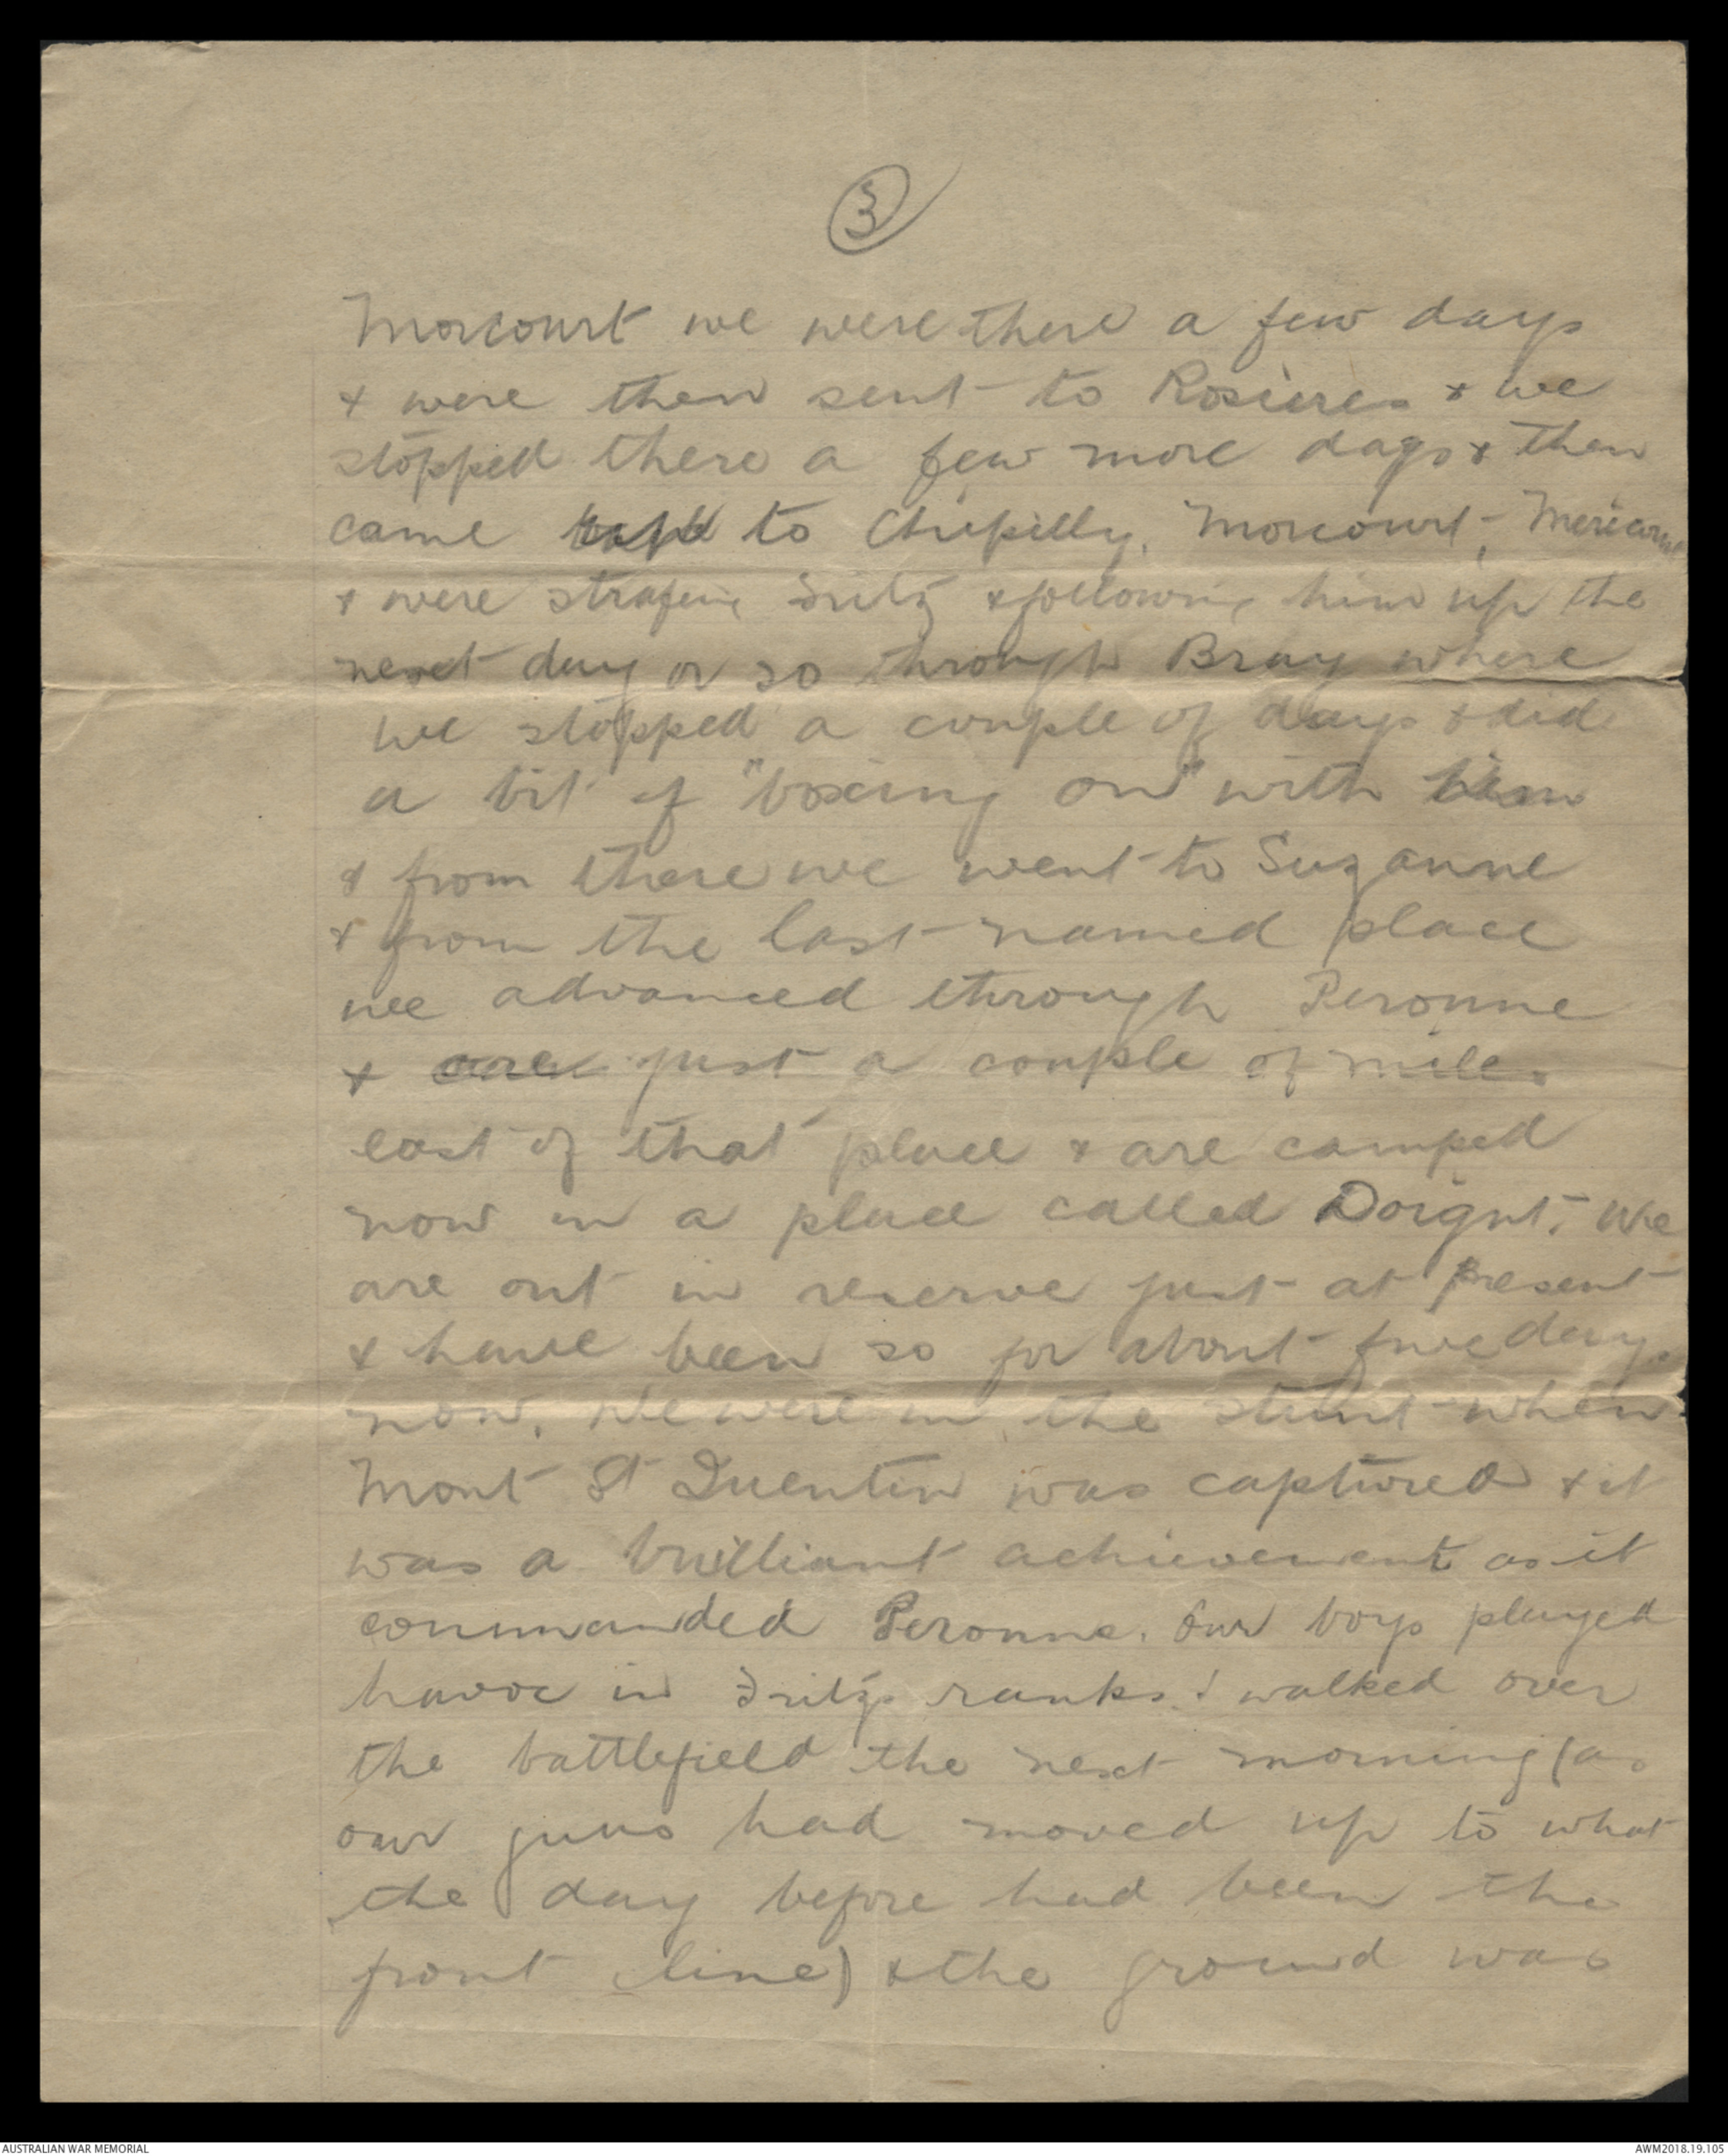 3
Morcourt we were there a few days
& were then sent to Rosieres & we
stopped there a few more days & then
came to Chipilly, Morcourt, Mericourt
& were strafing Fritz & following him up the
next day or so through Bray where
we stopped a couple of days & did
a bit of "boxing on" with him
& from there we went to Suzanne
& from the last named place
we advanced through Peronne
& are just a couple of miles
east of that place & are camped
now in a place called Doignt. We
are out in reserve just at present
& have been so for about five days
now. We were in the stunt when
Mont St Quentin was captured & it
was a brilliant achievement as it
commanded Peronne. Our boys played
havoc in Fritz's ranks. I walked over
the battlefield the next morning (as
our guns had moved up to what
the day before had been the
front line) & the ground was
AUSTRALIAN WAR MEMORIAL
AWM2018.19.105